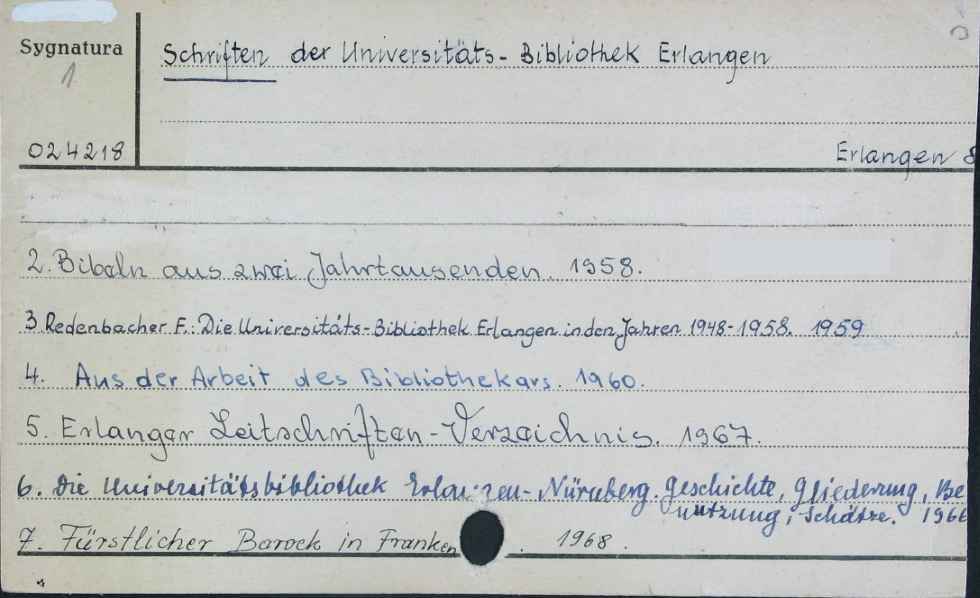 Sygnatura
1
024218
Schriften der Universitäts-Bibliothek Erlangen
Erlangen 8
2. Bibeln aus zwei Jahrtausenden. 1958.
3 Redenbacher F.: Die Universitäts-Bibliothek Erlangen in den Jahren 1948-1958. 1959
4. Aus der Arbeit des Bibliothekars. 1960.
5. Erlanger Zeitschriften-Verzeichnis. 1967.
6. Die Universitätsbibliothek Erlangen-Nürnberg. Geschichte, Gliederung, Be
nutzung, Schätze. 1966
7. Fürstlicher Barock in Franken. 1968.